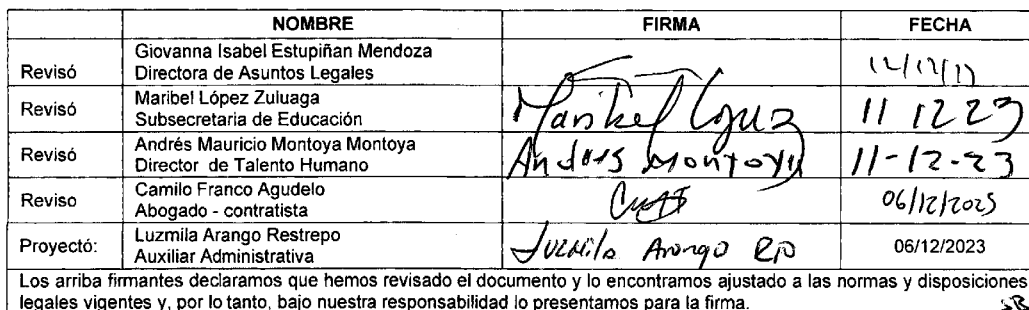 NOMBRE FIRMA FECHA
Giovanna Isabel Estupiñan Mendoza
Revisó Directora de Asuntos Legales
Maribel López Zuluaga
Revisó Subsecretaria de Educación Maribel 11 12 23
Andrés Mauricio Montoya Montoya
Revisó Director de Talento Humano Andrés Montoya 11-12-23
Camilo Franco Agudelo
Reviso Abogado - contratista
Luzmila Arango Restrepo
Proyectó: Auxiliar Administrativa Luzmila Arango 06/12/2023
Los arriba firmantes declaramos que hemos revisado el documento y lo encontramos ajustado a las normas y disposiciones
legales vigentes y, por lo tanto, bajo nuestra responsabilidad lo presentamos para la firma.